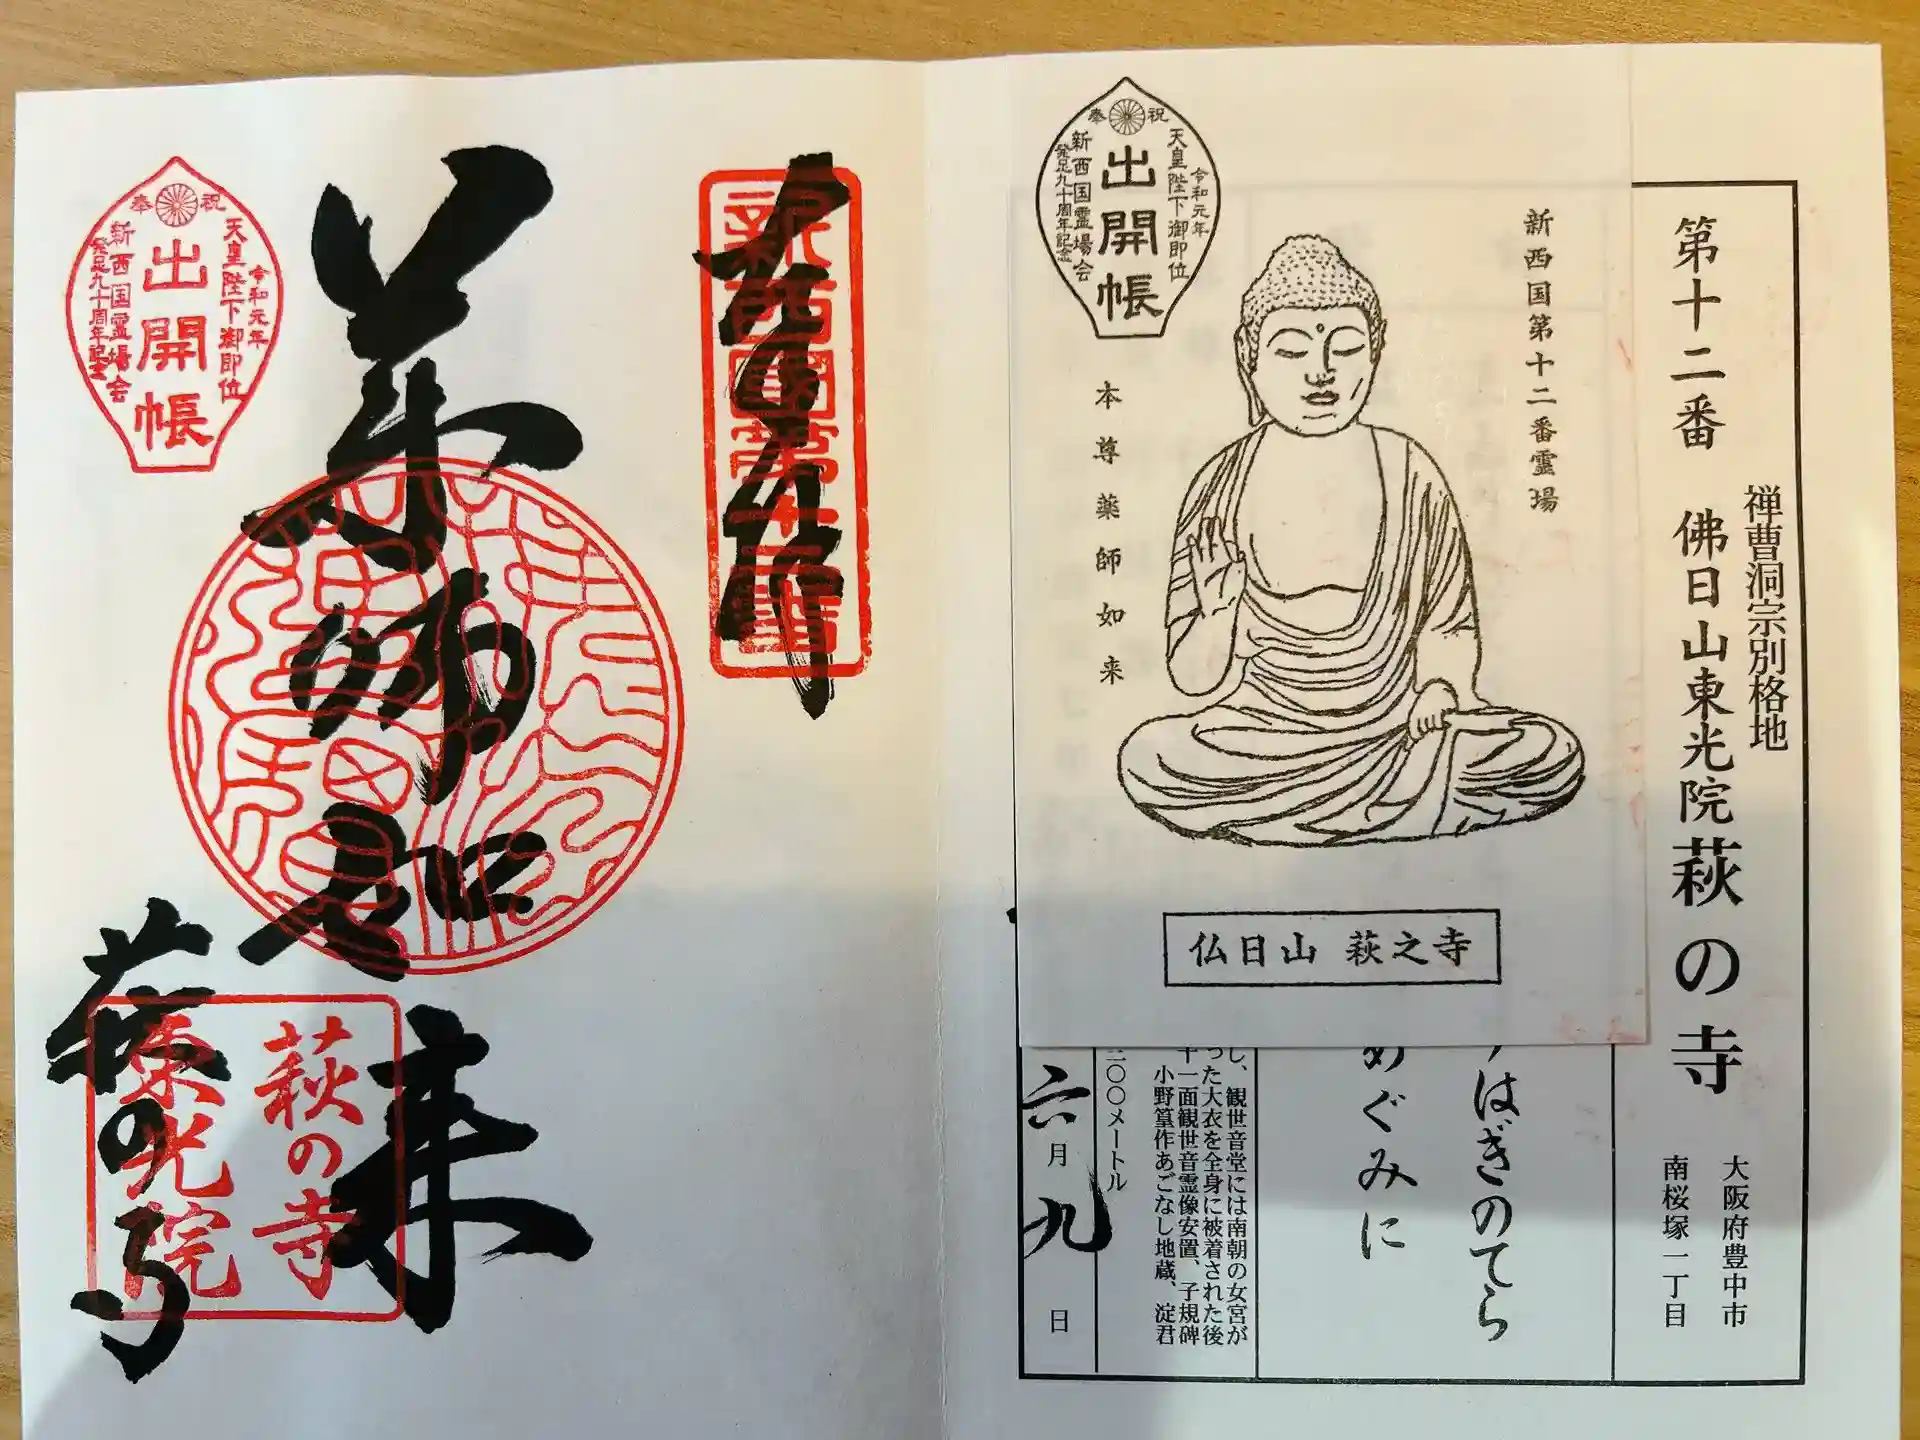 第十二番 佛日山東光院萩の寺
禅曹洞宗別格地
大阪府豊中市
南桜塚一丁目
はぎのてら
めぐみに
し、観世音堂には南朝の女宮が
った大衣を全身に被着された後
十一面観世音霊像安置、子規碑
小野篁作あごなし地蔵、淀君
二〇〇メートル
六月九日
新西国第十二番霊場
本尊薬師如来
仏日山 萩之寺
奉祝
令和元年
天皇陛下御即位
出開帳
新西国霊場会
発足九十周年記念
新西國第十二番
薬師如来
萩の寺
奉祝
令和元年
天皇陛下御即位
出開帳
新西国霊場会
発足九十周年記念
萩の寺
東光院